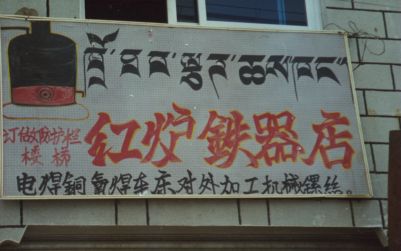 红炉鉄器店
订做防护栏
楼梯
电焊铜氧焊车床对外加工机械螺丝。